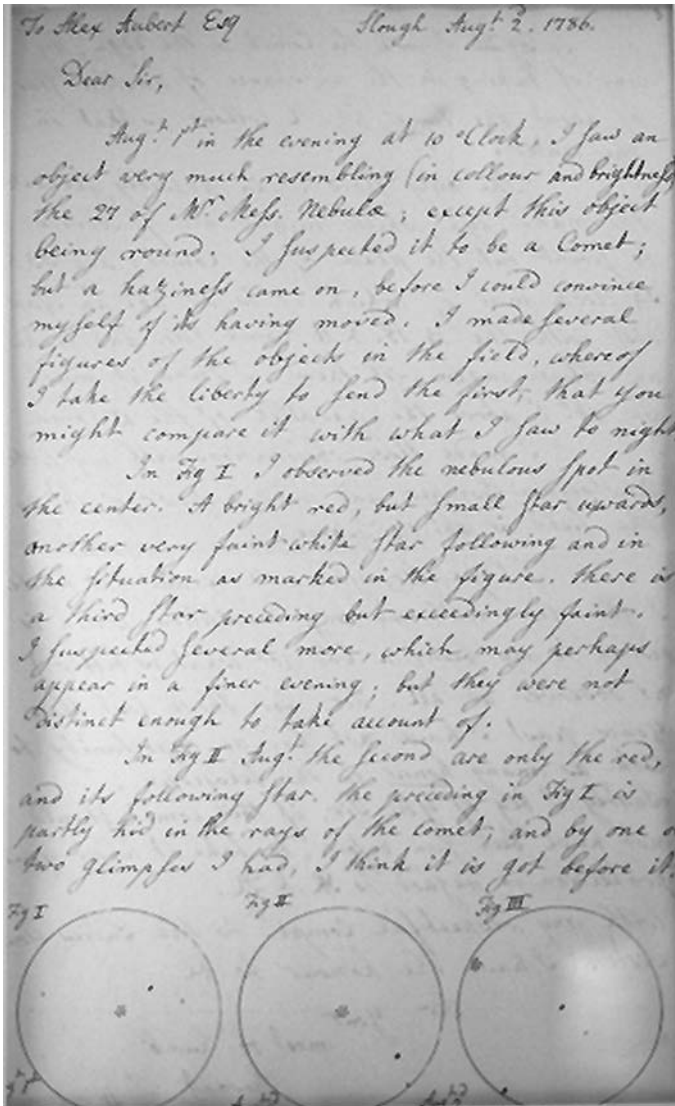 To Alex Aubert Esq Slough Augt 2d. 1786.
Dear Sir,
Augt. 1st in the evening at 10 oClock, I saw an
object very much resembling (in collour and brightness)
the 27 of Mr. Mess. Nebulæ; except this object
being round. I suspected it to be a Comet;
but a haziness came on, before I could convince
myself of its having moved. I made several
figures of the objects in the field, whereof
I take the liberty to send the first, that you
might compare it with what I saw to night.
In Fig I I observed the nebulous spot in
the center. A bright red, but small star upwards,
another very faint white star following and in
the situation as marked in the figure. there is
a third star preceding but exceedingly faint.
I suspected several more, which may perhaps
appear in a finer evening; but they were not
distinct enough to take account of.
In Fig II Augt. the second are only the red,
and its following star. the preceding in Fig I is
partly hid in the rays of the comet; and by one o
two glimpses I had, I think it is got before it.
Fig I Fig II Fig III